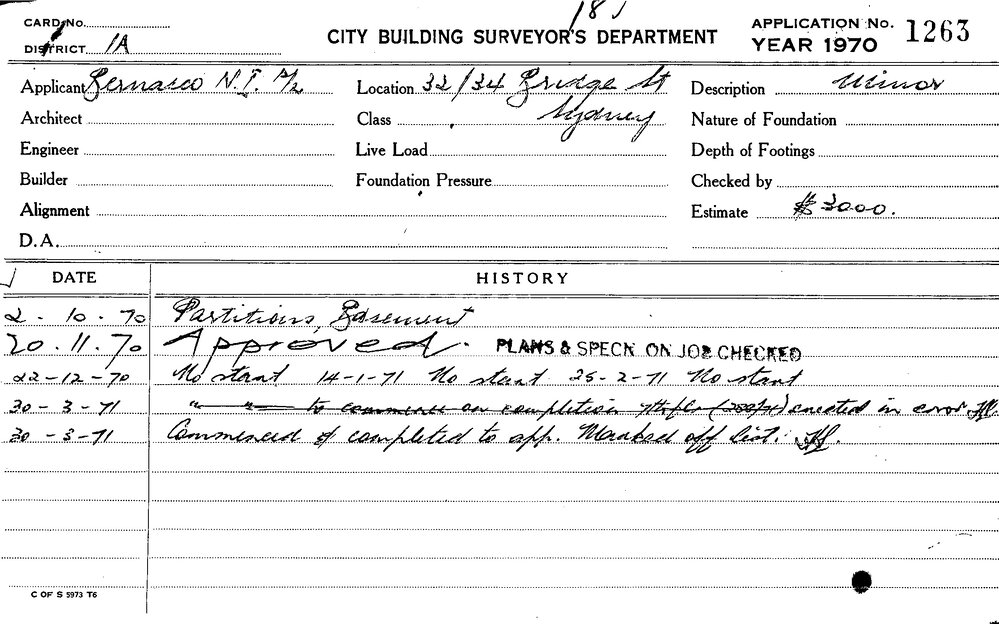 181
CARD No.
DISTRICT 1A
CITY BUILDING SURVEYOR'S DEPARTMENT
APPLICATION No. 1263
YEAR 1970
Applicant N.T.
Location 32/34 Bridge St
Sydney
Description Minor
Architect
Class
Nature of Foundation
Engineer
Live Load
Depth of Footings
Builder
Foundation Pressure
Checked by
Alignment
Estimate $3000.
D.A.
DATE HISTORY
2 . 10 . 70 Partitions, Basement
20 . 11 . 70 Approved. PLANS & SPECN ON JOB CHECKED
22-12-70 No start 14-1-71 No start 25-2-71 No start
30-3-71 " " to commence on completion 7th flr entered in error
30-3-71 Commenced & completed to app. Marked off list.
C OF S 5973 T6